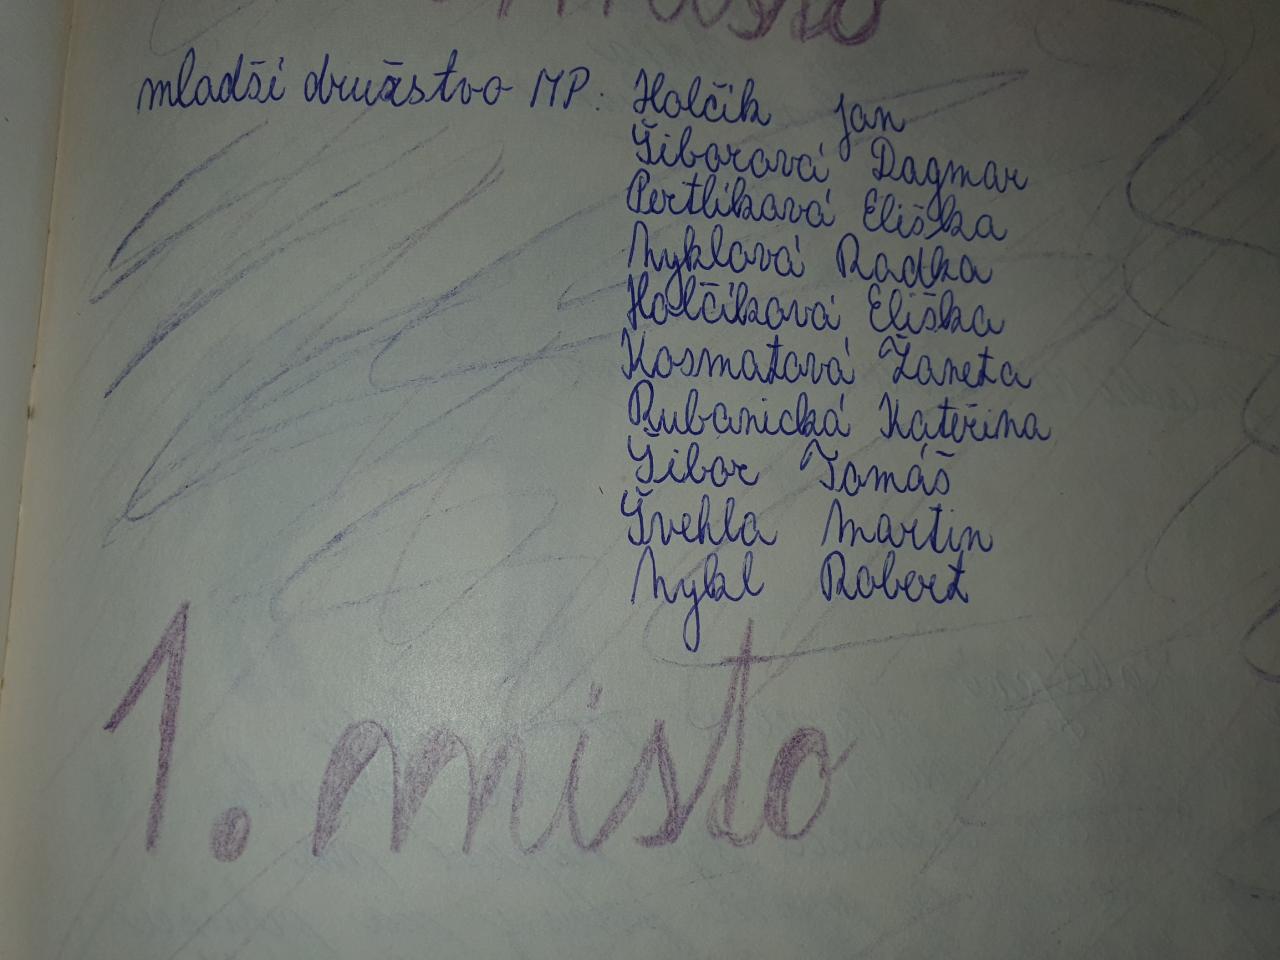 místo
mladší družstvo MP: Holčík Jan
Šiborová Dagmar
Pertlíková Eliška
Nyklová Radka
Holčíková Eliška
Kosmatová Žaneta
Rubanická Kateřina
Šibor Tomáš
Švehla Martin
Nykl Robert
1. místo